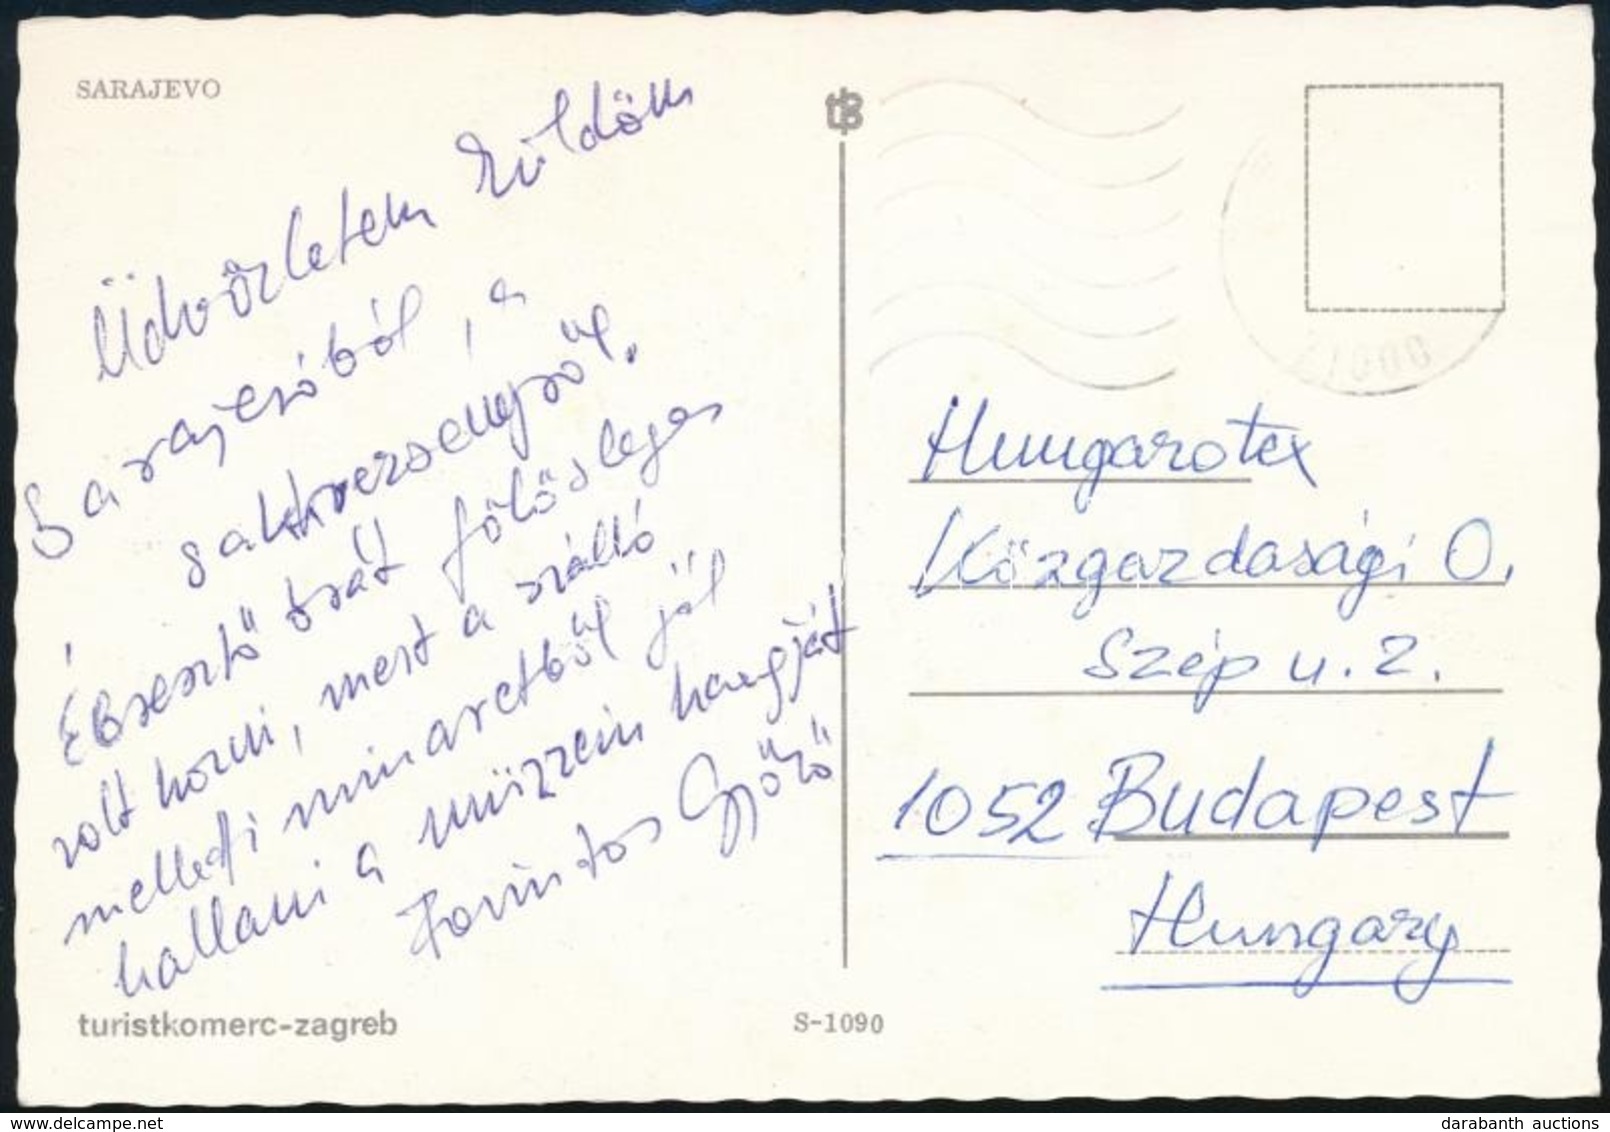 SARAJEVO
Üdvözletem küldöm
Sarajevóból, a
sakkversenyről.
Ébresztő órát fölösleges
volt hozni, mert a szálló
melletti minaretből jól
hallani a müzzein hangját
Forintos Győző
turistkomerc-zagreb
S-1090
71000
Hungarotex
Közgazdasági O.
Szép u. 2.
1052 Budapest
Hungary
www.delcampe.net
darabanth auctions